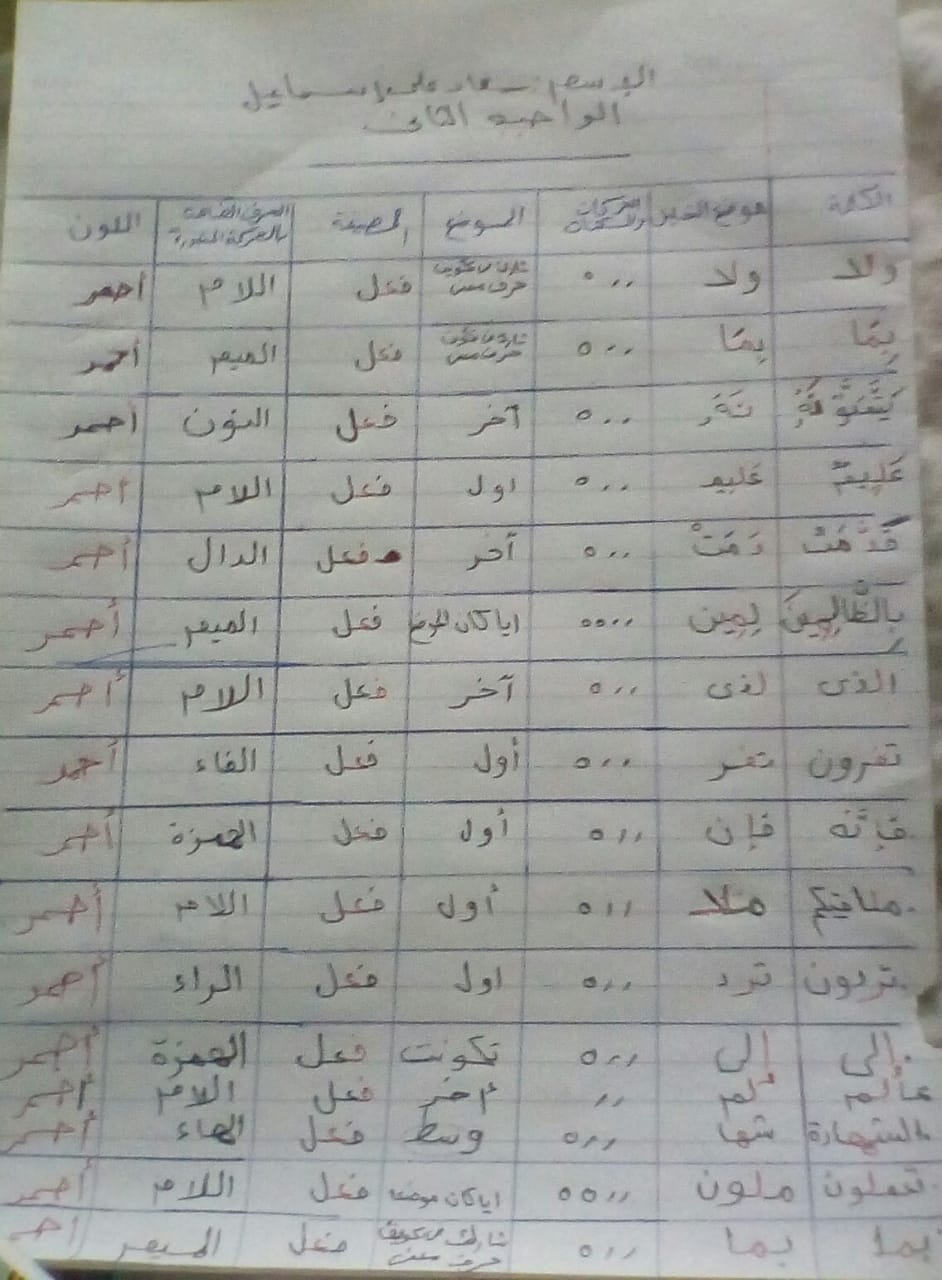 الاسم : سعاد على إسماعيل
الواجب الثانى
الكلمة موضع التغير الحركات والسكنات الموضع الصيغة الحرف اللون
ولا ولا ٥٫٫ شارك فى تكوين حرف معنى فعل اللام أحمر
بِمَا بِمَا ٥٫٫ شارك فى تكوين حرف معنى فعل الميم أحمر
آخر فعل النون أحمر
عَلِيمٌ عَلِيم ٥٫٫ اول فعل اللام أحمر
قَدَّمَتْ دَمَتْ ٥٫٫ آخر فعل الدال أحمر
بِالظَّالِمِينَ لِمِين ٥٥٫٫ ايا كان الموضع فعل الميم أحمر
الذى لذى ٥٫٫ آخر فعل اللام أحمر
تفرون تفر ٥٫٫ أول فعل الفاء أحمر
فإنه فإن ٥٫٫ أول فعل الهمزة أحمر
ملاقيكم ملا ٥٫٫ أول فعل اللام أحمر
تردون ترد ٥٫٫ اول فعل الراء أحمر
إلى إلى ٥٫٫ تكونت فعل الهمزة أحمر
عالم لم ٫٫ أخر فعل اللام أحمر
الشهادة شها ٥٫٫ وسط فعل الهاء أحمر
تعملون ملون ٥٥٫٫ ايا كان موضعه فعل اللام أحمر
بما بما ٥٫٫ شارك فى تكوين حرف معنى فعل الميم